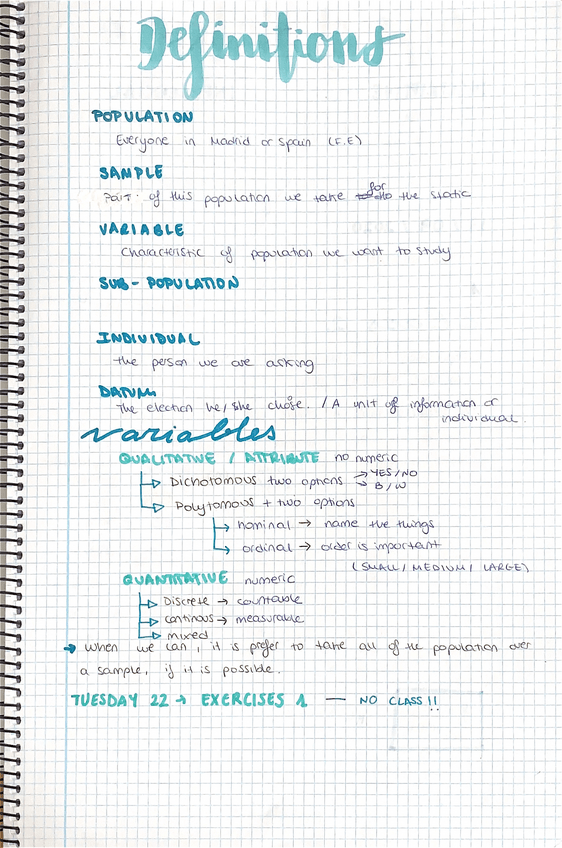 Definitions
POPULATION
Everyone in Madrid or Spain (F.E)
SAMPLE
Part of this population we take for the static
VARIABLE
Characteristic of population we want to study
SUB-POPULATION
INDIVIDUAL
the person we are asking
DATUM
The election he/she chose. / A unit of information or
individual.
Variables
QUALITATIVE / ATTRIBUTE no numeric
Dichotomous two options → YES/NO
→ B/W
Polytomous + two options
nominal → name the things
ordinal → order is important
(SMALL/MEDIUM/LARGE)
QUANTITATIVE numeric
Discrete → countable
continous → measurable
mixed
→ When we can, it is prefer to take all of the population over
a sample, if it is possible.
TUESDAY 22 → EXERCISES 1 — NO CLASS!!